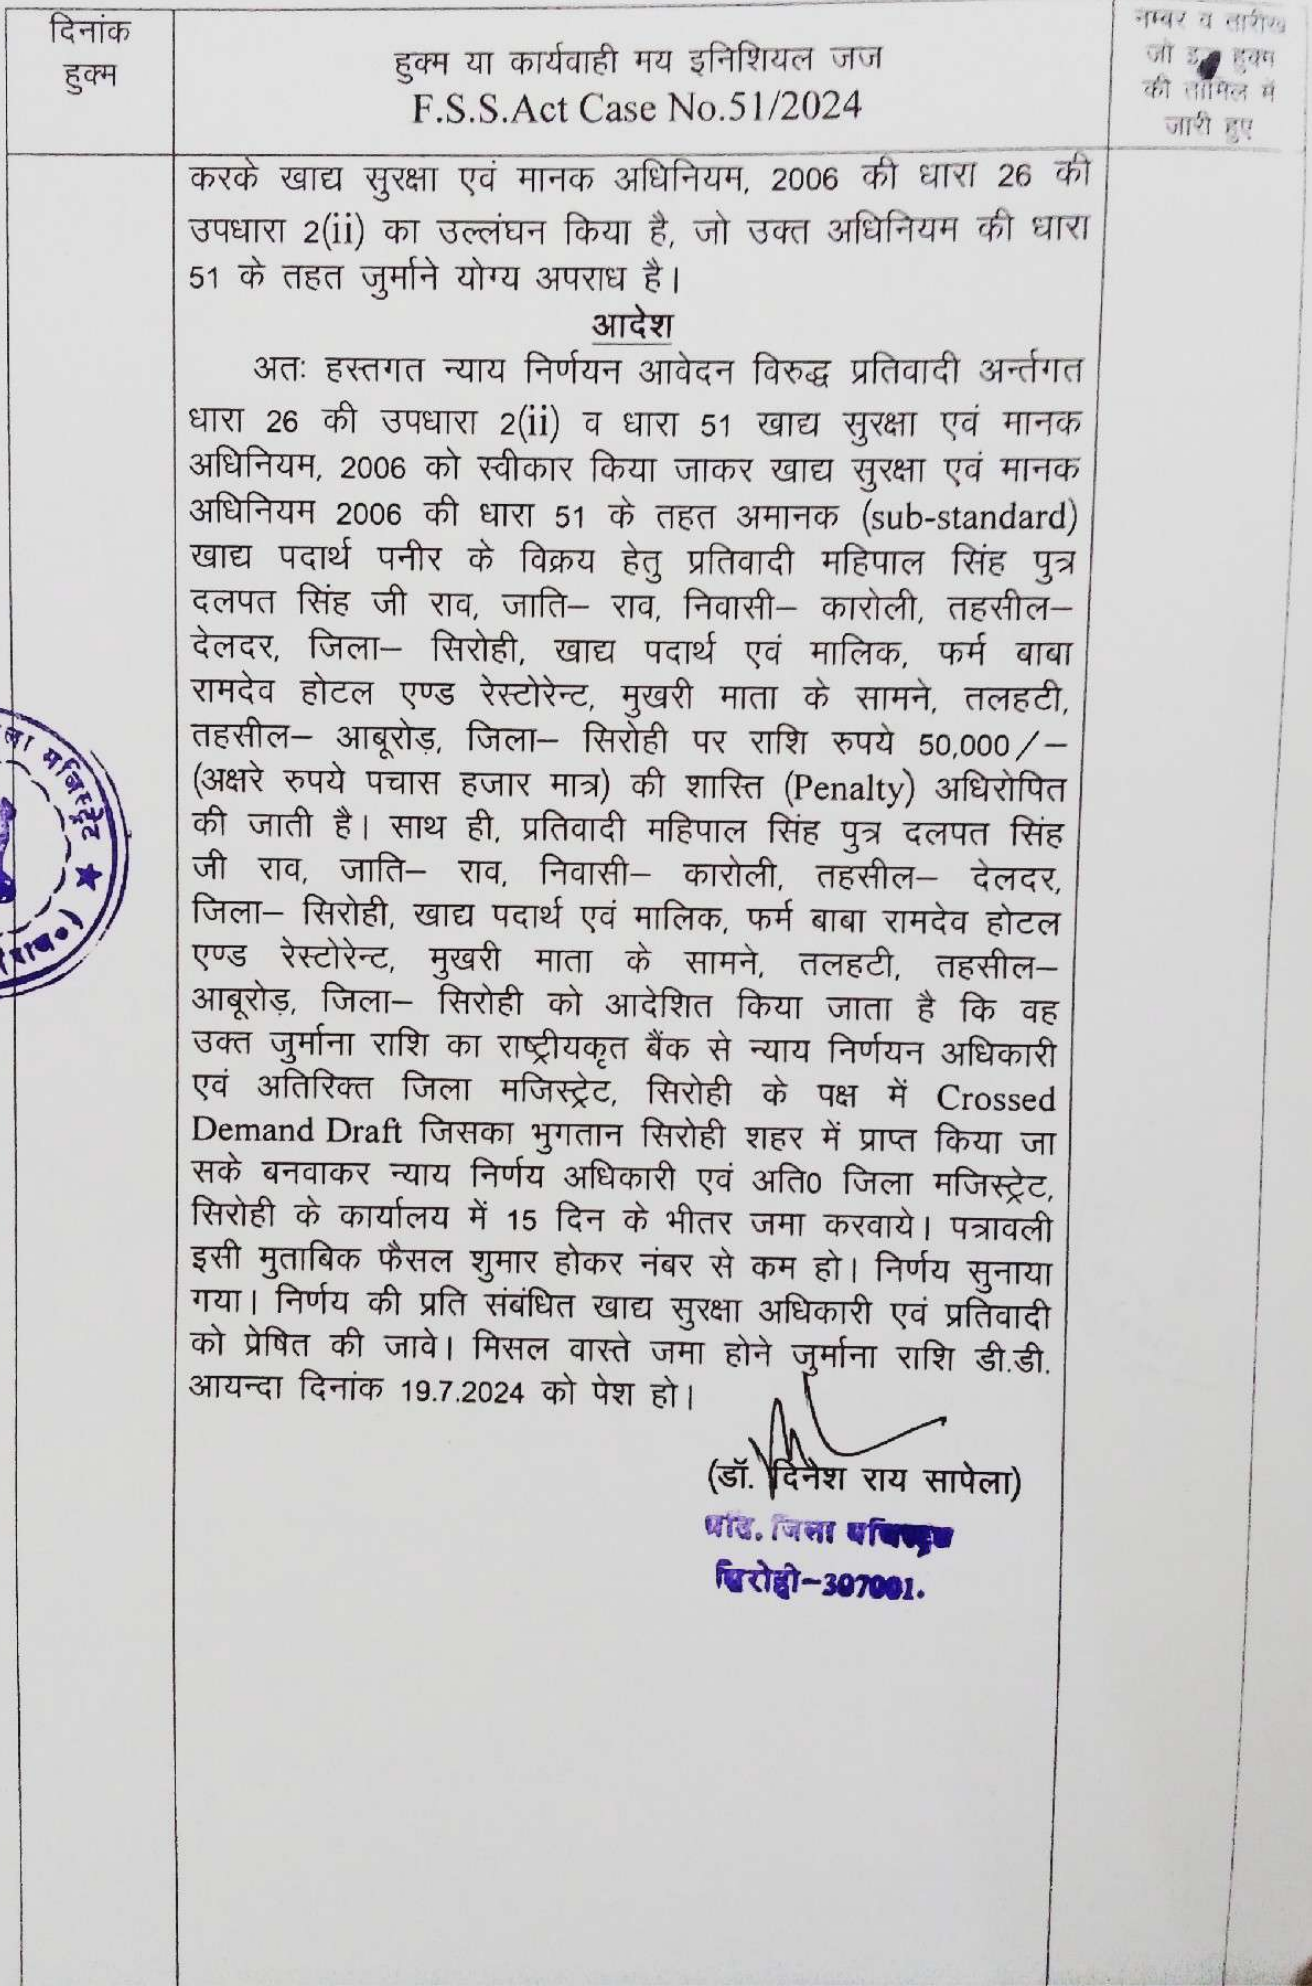 दिनांक
हुक्म
हुक्म या कार्यवाही मय इनिशियल जज
F.S.S.Act Case No.51/2024
नम्बर व तारीख
जो इस हुक्म
की तामिल में
जारी हुए
करके खाद्य सुरक्षा एवं मानक अधिनियम, 2006 की धारा 26 की
उपधारा 2(ii) का उल्लंघन किया है, जो उक्त अधिनियम की धारा
51 के तहत जुर्माने योग्य अपराध है।
आदेश
अतः हस्तगत न्याय निर्णयन आवेदन विरुद्ध प्रतिवादी अर्न्तगत
धारा 26 की उपधारा 2(ii) व धारा 51 खाद्य सुरक्षा एवं मानक
अधिनियम, 2006 को स्वीकार किया जाकर खाद्य सुरक्षा एवं मानक
अधिनियम 2006 की धारा 51 के तहत अमानक (sub-standard)
खाद्य पदार्थ पनीर के विक्रय हेतु प्रतिवादी महिपाल सिंह पुत्र
दलपत सिंह जी राव, जाति– राव, निवासी– कारोली, तहसील–
देलदर, जिला– सिरोही, खाद्य पदार्थ एवं मालिक, फर्म बाबा
रामदेव होटल एण्ड रेस्टोरेन्ट, मुखरी माता के सामने, तलहटी,
तहसील– आबूरोड़, जिला– सिरोही पर राशि रुपये 50,000/–
(अक्षरे रुपये पचास हजार मात्र) की शास्ति (Penalty) अधिरोपित
की जाती है। साथ ही, प्रतिवादी महिपाल सिंह पुत्र दलपत सिंह
जी राव, जाति– राव, निवासी– कारोली, तहसील– देलदर,
जिला– सिरोही, खाद्य पदार्थ एवं मालिक, फर्म बाबा रामदेव होटल
एण्ड रेस्टोरेन्ट, मुखरी माता के सामने, तलहटी, तहसील–
आबूरोड़, जिला– सिरोही को आदेशित किया जाता है कि वह
उक्त जुर्माना राशि का राष्ट्रीयकृत बैंक से न्याय निर्णयन अधिकारी
एवं अतिरिक्त जिला मजिस्ट्रेट, सिरोही के पक्ष में Crossed
Demand Draft जिसका भुगतान सिरोही शहर में प्राप्त किया जा
सके बनवाकर न्याय निर्णय अधिकारी एवं अति0 जिला मजिस्ट्रेट,
सिरोही के कार्यालय में 15 दिन के भीतर जमा करवाये। पत्रावली
इसी मुताबिक फैसल शुमार होकर नंबर से कम हो। निर्णय सुनाया
गया। निर्णय की प्रति संबंधित खाद्य सुरक्षा अधिकारी एवं प्रतिवादी
को प्रेषित की जावे। मिसल वास्ते जमा होने जुर्माना राशि डी.डी.
आयन्दा दिनांक 19.7.2024 को पेश हो।
(डॉ. दिनेश राय सापेला)
अति. जिला मजिस्ट्रेट
सिरोही–307001.
मजिस्ट्रेट ★
(राज०)